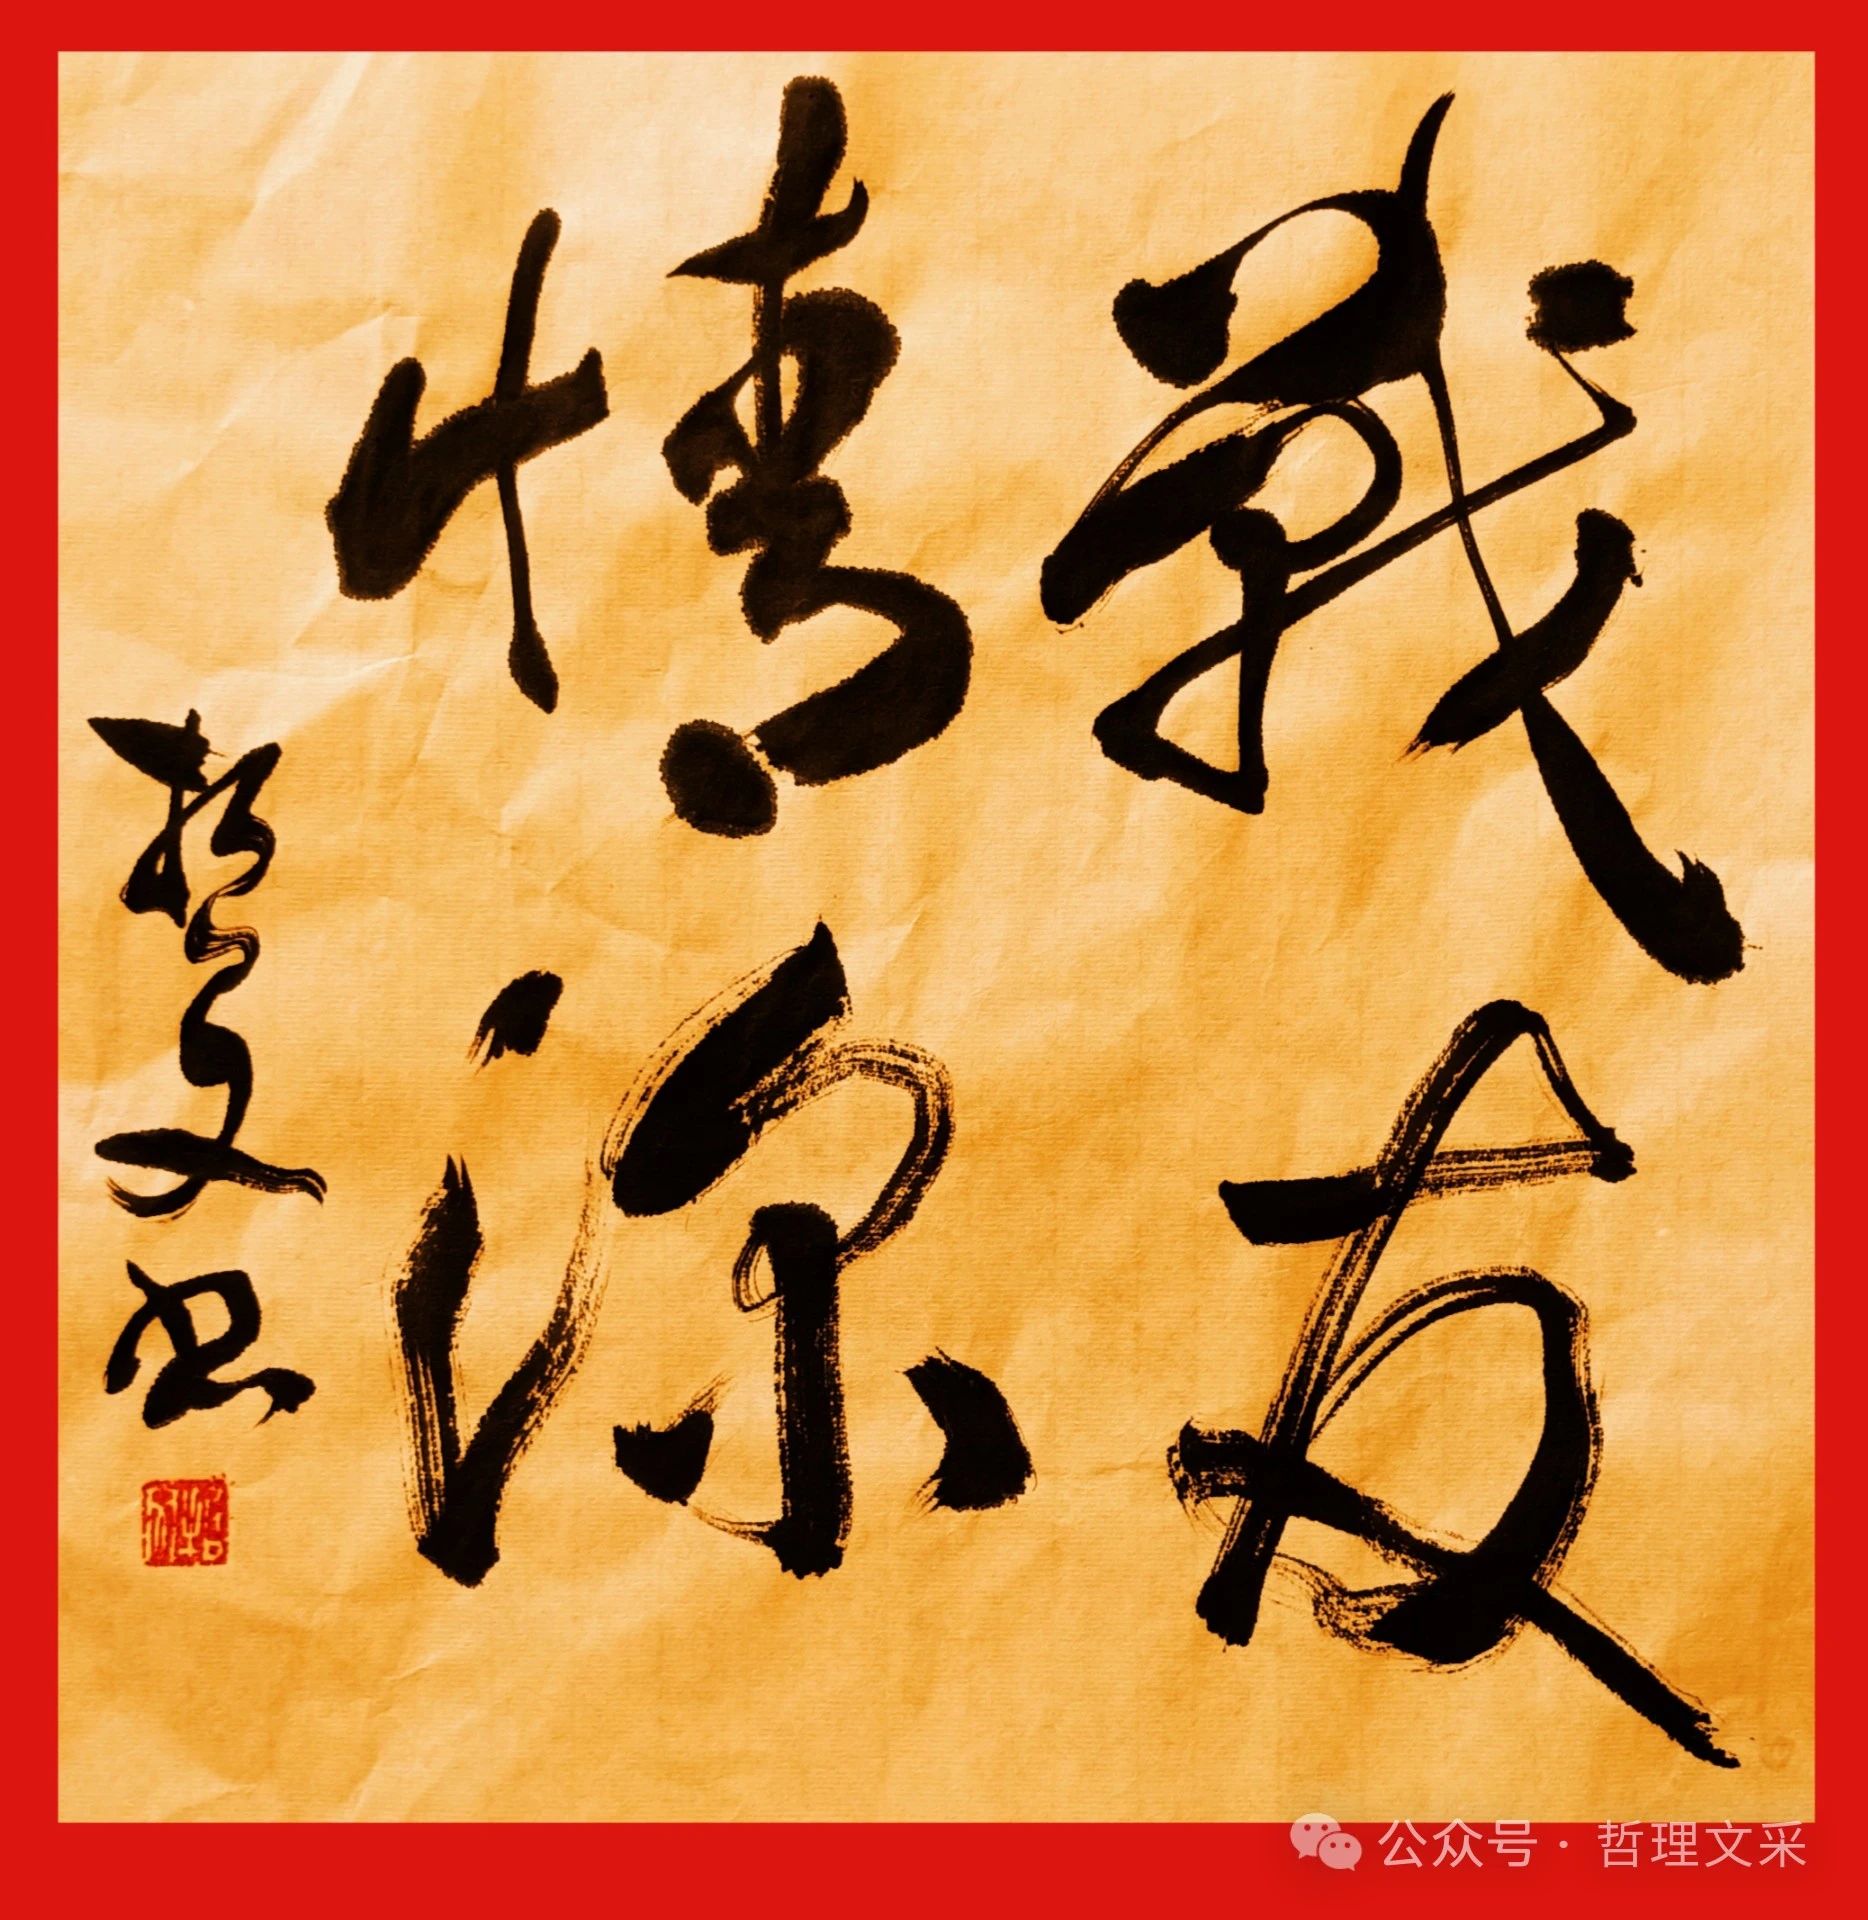 戰友
情深
哲文书
公众号 · 哲理文采